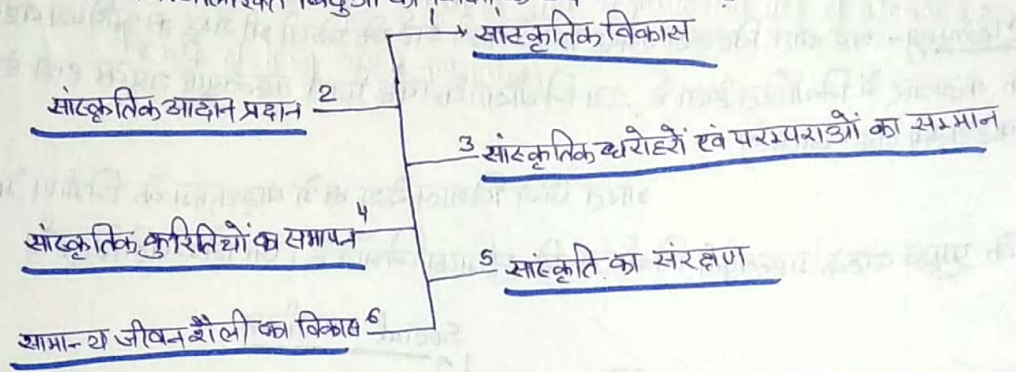 1 → सांस्कृतिक विकास
सांस्कृतिक आदान प्रदान 2
3 सांस्कृतिक धरोहरों एवं परम्पराओं का सम्मान
सांस्कृतिक कुरितियों का समापन 4
5 सांस्कृति का संरक्षण
सामान्य जीवन शैली का विकास 6